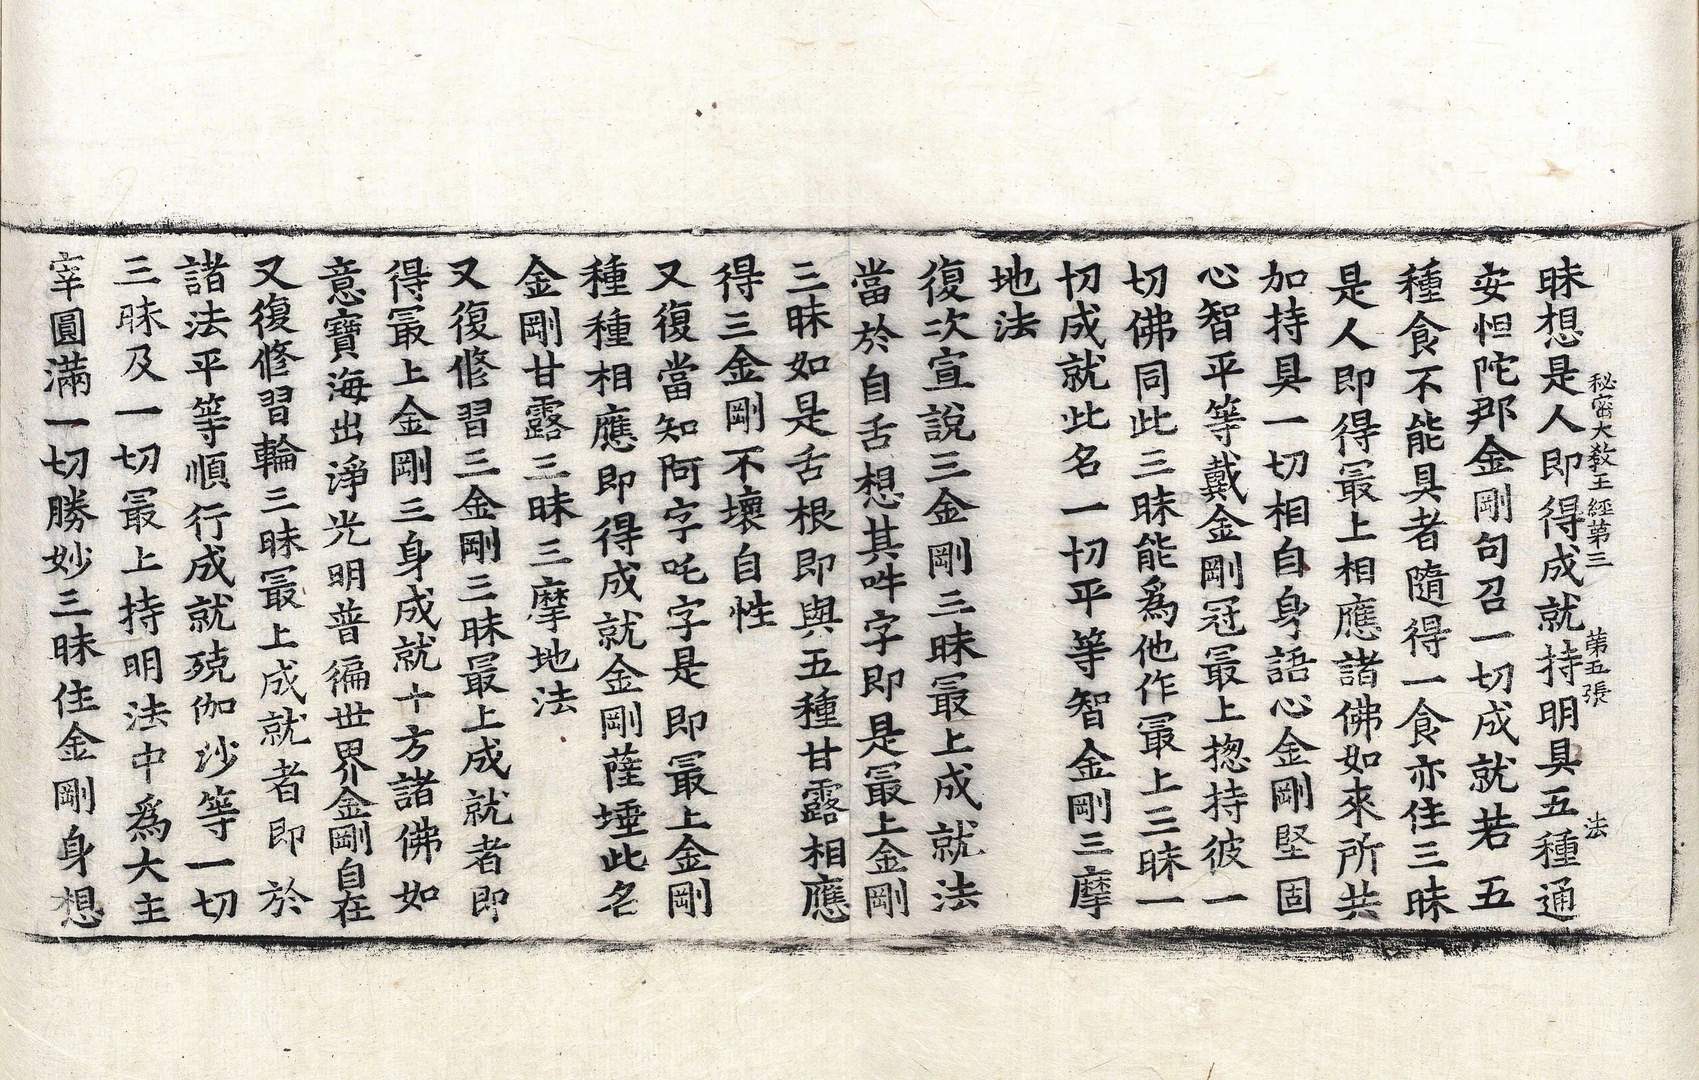 秘密大教王經第三　第五張　法
昧想是人即得成就持明具五種通
安怛陀那金剛句召一切成就若五
種食不能具者隨得一食亦住三昧
是人即得冣上相應諸佛如來所共
加持具一切相自身語心金剛堅固
心智平等戴金剛冠冣上揔持彼一
切佛同此三昧能爲他作冣上三昧一
切成就此名一切平等智金剛三摩
地法
復次宣說三金剛三昧冣上成就法
當於自舌想其吽字即是冣上金剛
三昧如是舌根即與五種甘露相應
得三金剛不壞自性
又復當知阿字吒字是即冣上金剛
種種相應即得成就金剛薩埵此名
金剛甘露三昧三摩地法
又復修習三金剛三昧冣上成就者即
得冣上金剛三身成就十方諸佛如
意寶海出淨光明普徧世界金剛自在
又復修習輪三昧冣上成就者即於
諸法平等順行成就殑伽沙等一切
三昧及一切冣上持明法中爲大主
宰圓滿一切勝妙三昧住金剛身想